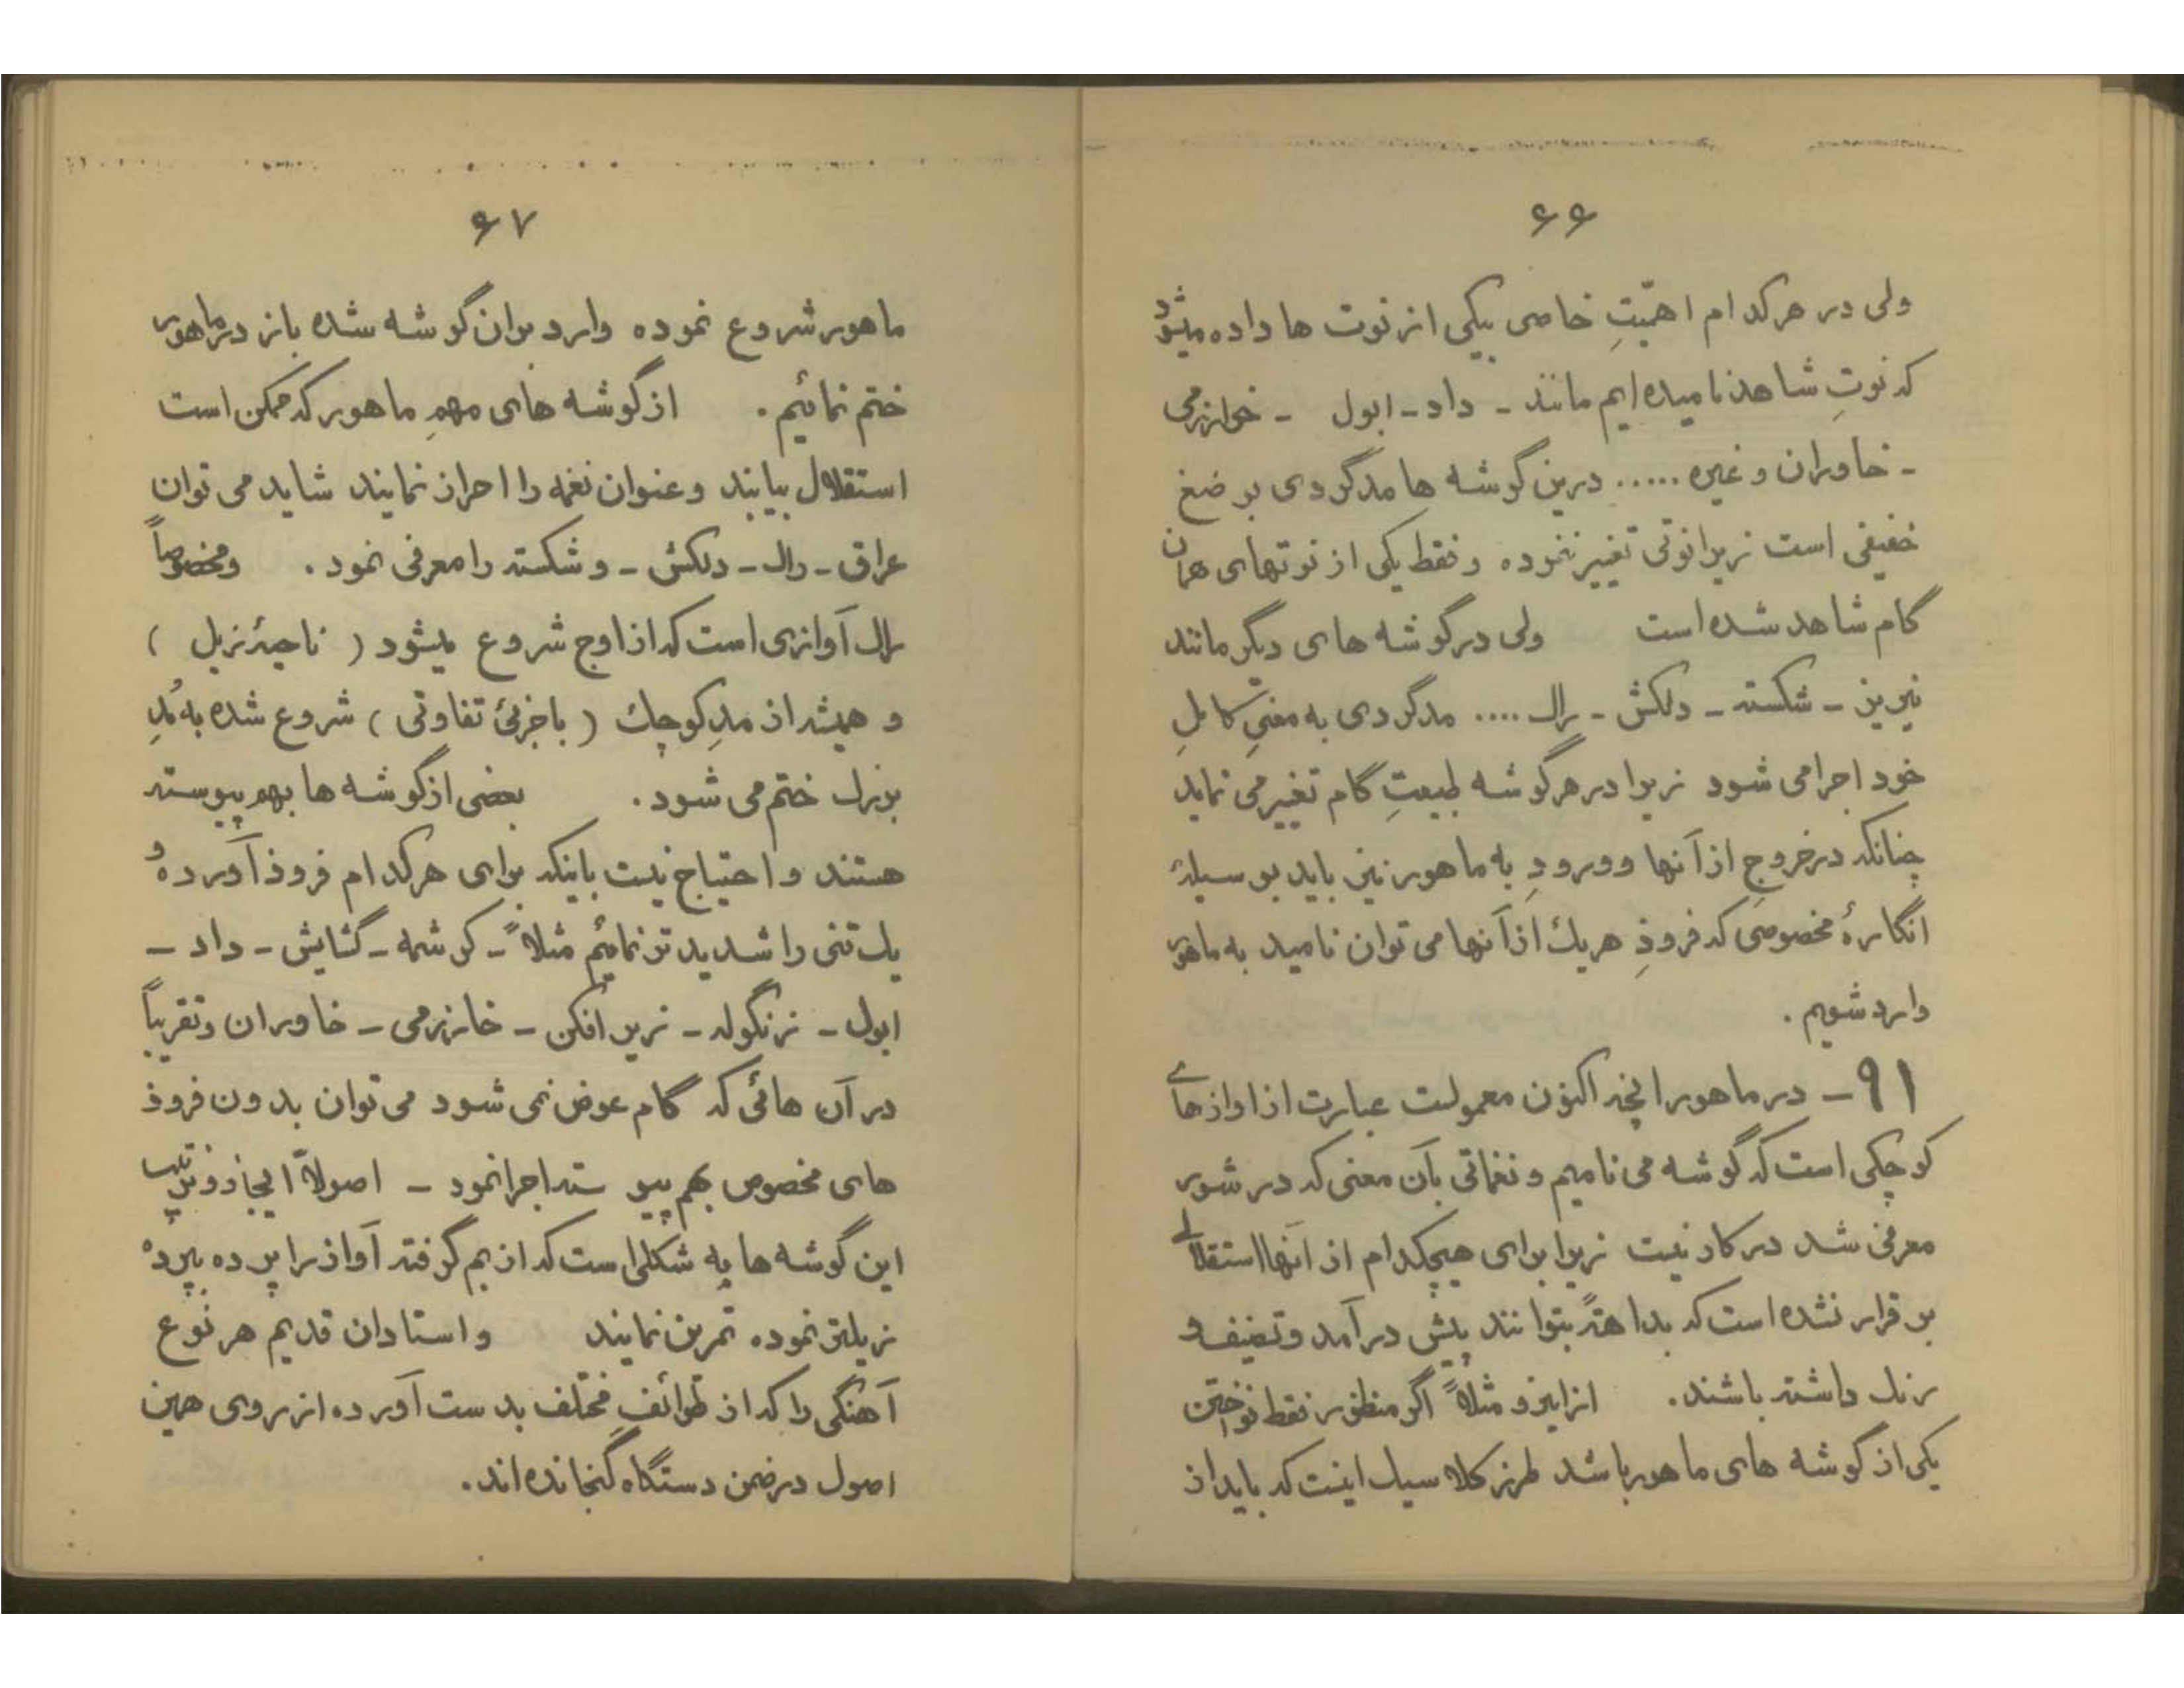 ۶۶
ولی در هرکدام اهمّیتِ خاصی بیکی از نوت ها داده میشود
که نوتِ شاهد نامیده ایم مانند - داد - ابول - خوارزمی
- خاوران و غیره ..... درین گوشه ها مدگردی بر ضغ
خفیفی است زیرا نوتی تغییر ننموده و فقط یکی از نوتهای همان
گام شاهد شده است ولی در گوشه های دیگر مانند
نیریز - شکسته - دلکش - راک .... مدگردی به معنیِ کاملِ
خود اجرا می شود زیرا در هر گوشه طبیعتِ گام تغییر می نماید
چنانکه در خروج از آنها و ورودِ به ماهور نیز باید بوسیلهٔ
انگارهٔ مخصوصی که فرودِ هریک از آنها می توان نامید به ماهور
وارد شویم .
۹۱ - در ماهور انچه اکنون معمولست عبارت از اوازهای
کوچکی است که گوشه می نامیم و نغماتی بآن معنی که در شور
معرفی شد در کار نیست زیرا برای هیچکدام از آنها استقلالی
بر قرار نشده است که بداهةً بتوانند پیش درآمد و تصنیف و
رنک داشته باشند . ازاینرو مثلاً اگر منظور فقط نواختن
یکی از گوشه های ماهور باشد طرز کلاسیک اینست که باید از
۶۷
ماهور شروع نموده وارد بران گوشه شده باز در ماهور
ختم نمائیم . از گوشه های مهمِ ماهور که ممکن است
استقلال بیابند و عنوان نغمه را احراز نمایند شاید می توان
عراق - راک - دلکش - و شکسته را معرفی نمود . ومخصوصاً
راک آوازی است که از اوج شروع میشود ( ناحیهٔ زیل )
و همیشه از مدِ کوچک ( با جزئی تفاوتی ) شروع شده به مُدِ
بزرک ختم می شود . بعضی از گوشه ها بهم پیوسته
هستند و احتیاج نیست باینکه برای هرکدام فرود آورده و
یک تنی را شدید تر نمائیم مثلاً - کرشمه - گشایش - داد -
ابول - زنگوله - زیر افکن - خارزمی - خاوران و تقریباً
در آن هائی که گام عوض نمی شود می توان بدون فرود
های مخصوص بهم پیوسته اجرا نمود - اصولاً ایجاد و ترتیب
این گوشه ها به شکلی است که از بم گرفته آواز را پرده بپرده
زیلتر نموده تمرین نمایند و استادان قدیم هر نوع
آهنگی را که از طوائفِ مختلف بدست آورده از روی همین
اصول در ضمن دستگاه گنجانده اند .